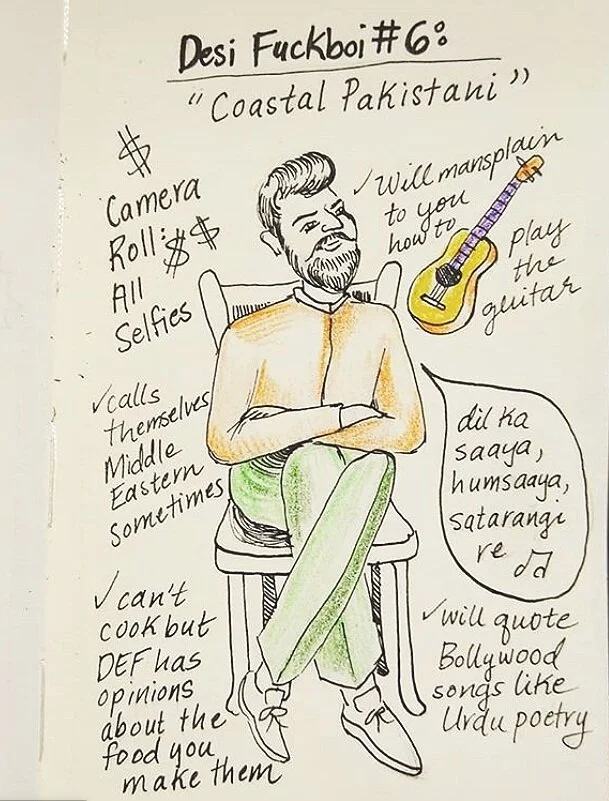 Desi Fuckboi #6:
"Coastal Pakistani"
$
Camera
Roll: $$
All
Selfies
✓ Will mansplain
to you
how to
play
the
guitar
✓ calls
themselves
Middle
Eastern
sometimes
dil ka
saaya,
humsaaya,
satarangi
re ♫
✓ can't
cook but
DEF has
opinions
about the
food you
make them
✓ will quote
Bollywood
songs like
Urdu poetry